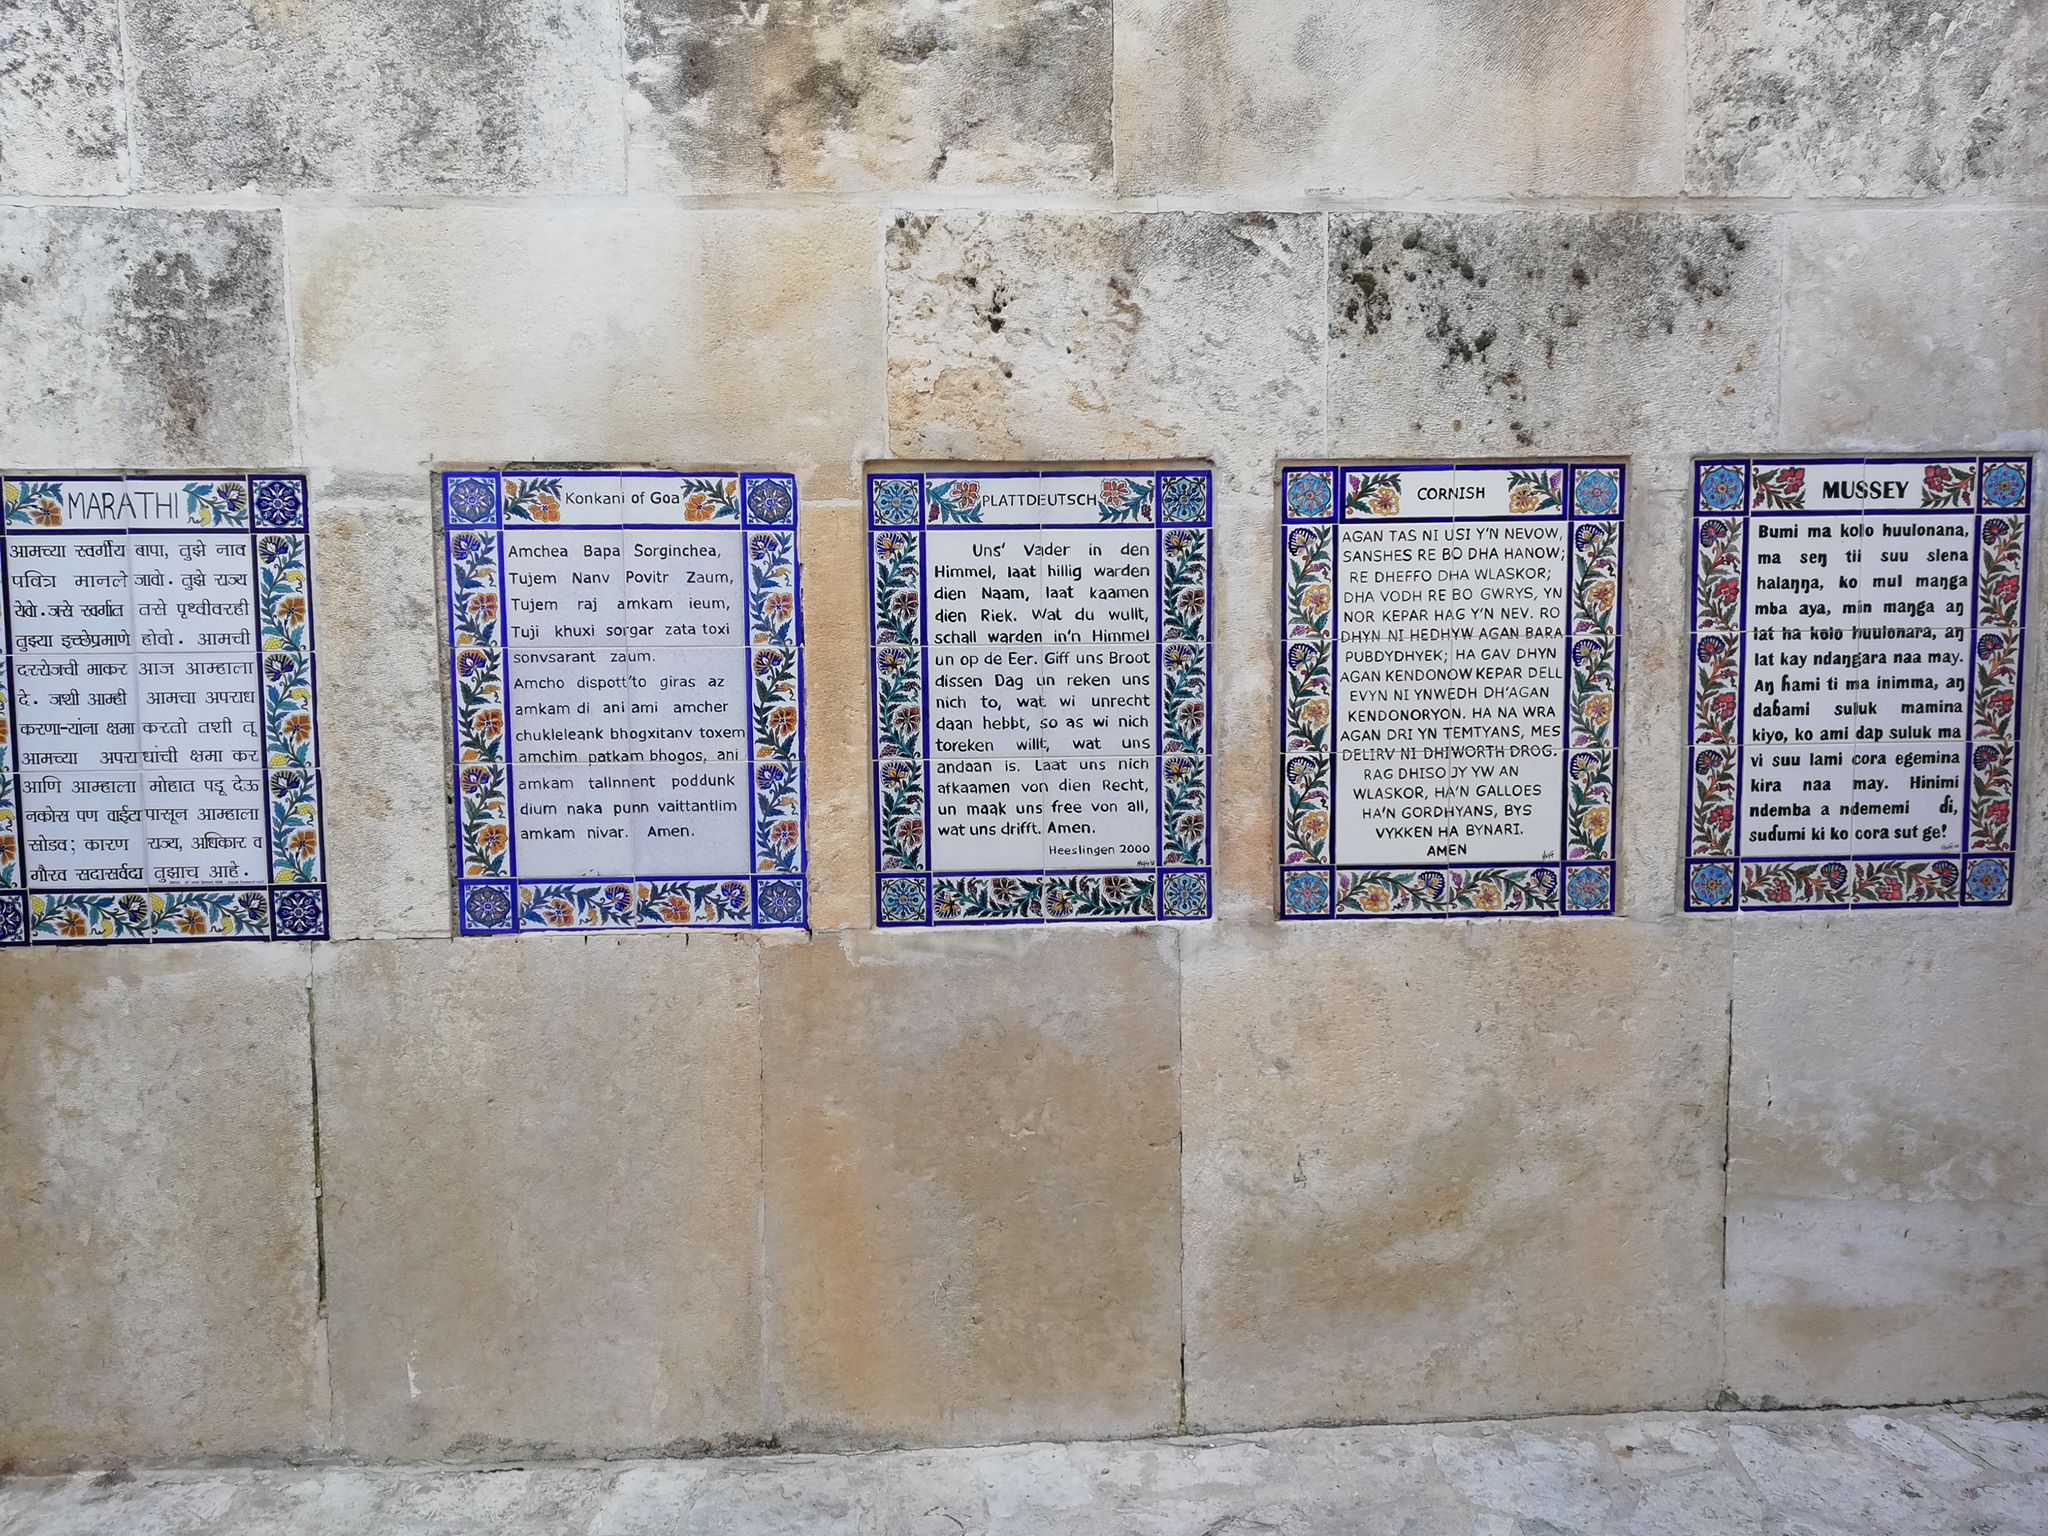 MARATHI
आमच्या स्वर्गीय बापा, तुझे नाव
पवित्र मानले जावो. तुझे राज्य
येवो. जसे स्वर्गात तसे पृथ्वीवरही
तुझ्या इच्छेप्रमाणे होवो. आमची
दररोजची भाकर आज आम्हाला
दे. जशी आम्ही आमचा अपराध
करणा-यांना क्षमा करतो तशी तू
आमच्या अपराधांची क्षमा कर
आणि आम्हाला मोहात पडू देऊ
नकोस पण वाईटापासून आम्हाला
सोडव; कारण राज्य, अधिकार व
गौरव सदासर्वदा तुझाच आहे.
Konkani of Goa
Amchea Bapa Sorginchea,
Tujem Nanv Povitr Zaum,
Tujem raj amkam ieum,
Tuji khuxi sorgar zata toxi
sonvsarant zaum.
Amcho dispott'to giras az
amkam di ani ami amcher
chukleleank bhogxitanv toxem
amchim patkam bhogos, ani
amkam tallnnent poddunk
dium naka punn vaittantlim
amkam nivar. Amen.
PLATTDEUTSCH
Uns' Vader in den
Himmel, laat hillig warden
dien Naam, laat kaamen
dien Riek. Wat du wullt,
schall warden in'n Himmel
un op de Eer. Giff uns Broot
dissen Dag un reken uns
nich to, wat wi unrecht
daan hebbt, so as wi nich
toreken willt, wat uns
andaan is. Laat uns nich
afkaamen von dien Recht,
un maak uns free von all,
wat uns drifft. Amen.
Heeslingen 2000
CORNISH
AGAN TAS NI USI Y'N NEVOW,
SANSHES RE BO DHA HANOW;
RE DHEFFO DHA WLASKOR;
DHA VODH RE BO GWRYS, YN
NOR KEPAR HAG Y'N NEV. RO
DHYN NI HEDHYW AGAN BARA
PUBDYDHYEK; HA GAV DHYN
AGAN KENDONOW KEPAR DELL
EVYN NI YNWEDH DH'AGAN
KENDONORYON. HA NA WRA
AGAN DRI YN TEMTYANS, MES
DELIRV NI DHIWORTH DROG.
RAG DHISO JY YW AN
WLASKOR, HA'N GALLOES
HA'N GORDHYANS, BYS
VYKKEN HA BYNARI.
AMEN
MUSSEY
Bumi ma kolo huulonana,
ma seŋ tii suu slena
halaŋŋa, ko mul maŋga
mba aya, min maŋga aŋ
lat ha kolo huulonara, aŋ
lat kay ndaŋgara naa may.
Aŋ ɦami ti ma inimma, aŋ
daɓami suluk mamina
kiyo, ko ami dap suluk ma
vi suu lami cora egemina
kira naa may. Hinimi
ndemba a ndememi ɗi,
suɗumi ki ko cora sut ge!